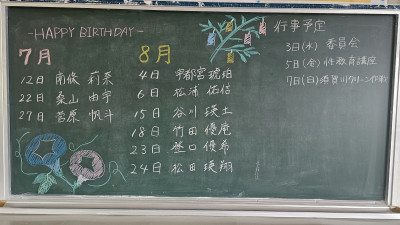 -HAPPY BIRTHDAY-
7月
12日 南條 莉奈
22日 桑山 由宇
27日 菅原 帆斗
8月
4日 宇都宮 琥珀
6日 松浦 佑信
15日 谷川 瑛士
18日 竹田 優庵
23日 登口 優希
24日 松田 瑛翔
行事予定
3日(水) 委員会
5日(金) 性教育講座
7日(日) 須賀川クリーン作戦